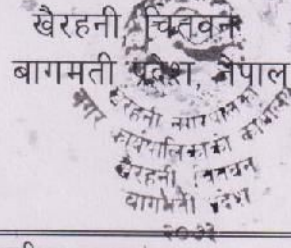 खैरहनी, चितवन
बागमती प्रदेश, नेपाल
खैरहनी नगरपालिका
नगर कार्यपालिकाको कार्यालय
खैरहनी, चितवन
बागमती प्रदेश
२०७३